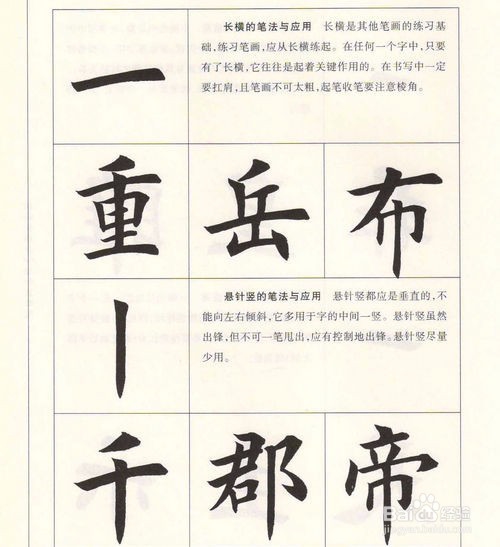 一
长横的笔法与应用 长横是其他笔画的练习基
础,练习笔画,应从长横练起。在任何一个字中,只要
有了长横,它往往是起着关键作用的。在书写中一定
要扛肩,且笔画不可太粗,起笔收笔要注意棱角。
重 岳 布
丨
悬针竖的笔法与应用 悬针竖都应是垂直的,不
能向左右倾斜,它多用于字的中间一竖。悬针竖虽然
出锋,但不可一笔甩出,应有控制地出锋。悬针竖尽量
少用。
千 郡 帝
Baidu经验
jingyan.baidu.com